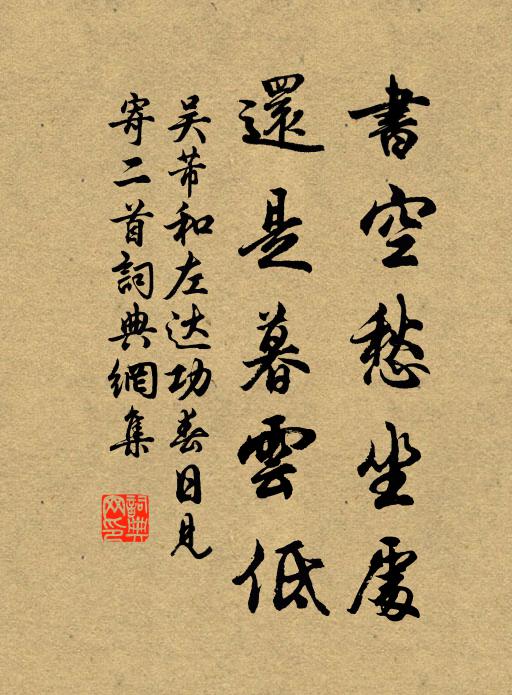 書空愁坐處
還是暮雲低
吴芾和左达功春日見
寄二首詞典網集
詞典網印